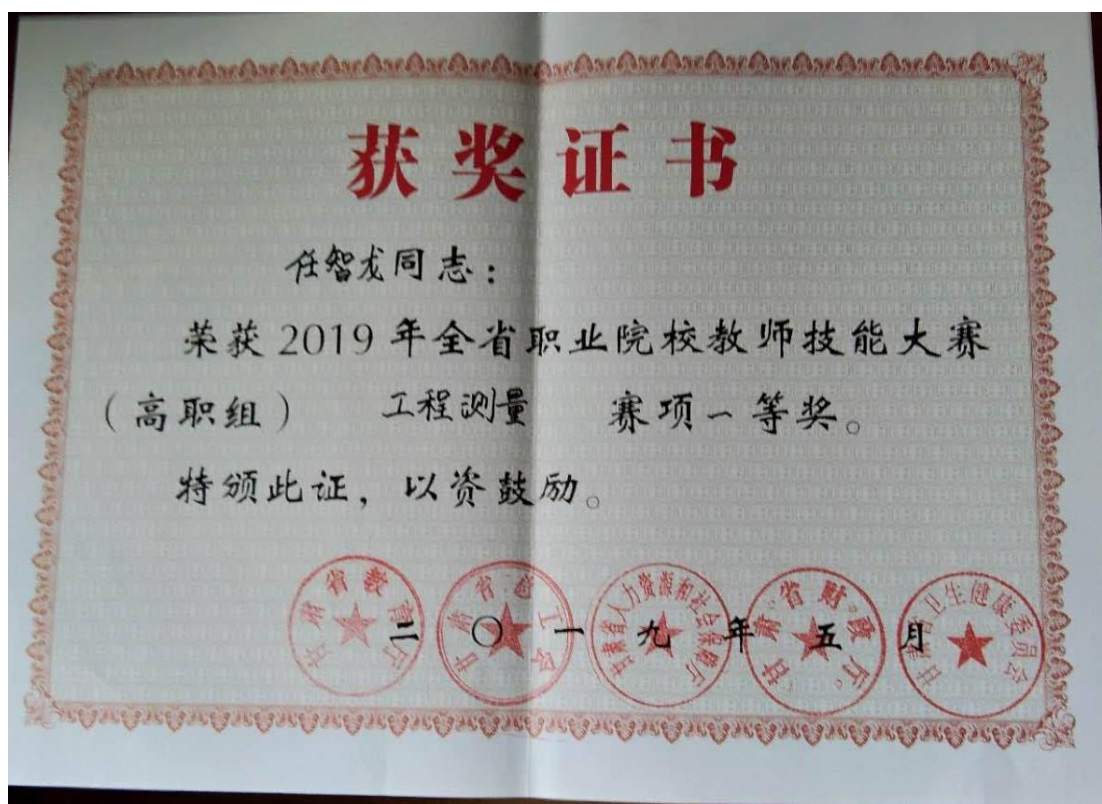 获奖证书
任智龙同志：
荣获2019年全省职业院校教师技能大赛
（高职组） 工程测量 赛项一等奖。
特颁此证，以资鼓励。
甘肃省教育厅
甘肃省总工会
甘肃省人力资源和社会保障厅
甘肃省财政厅
甘肃省卫生健康委员会
二〇一九年五月